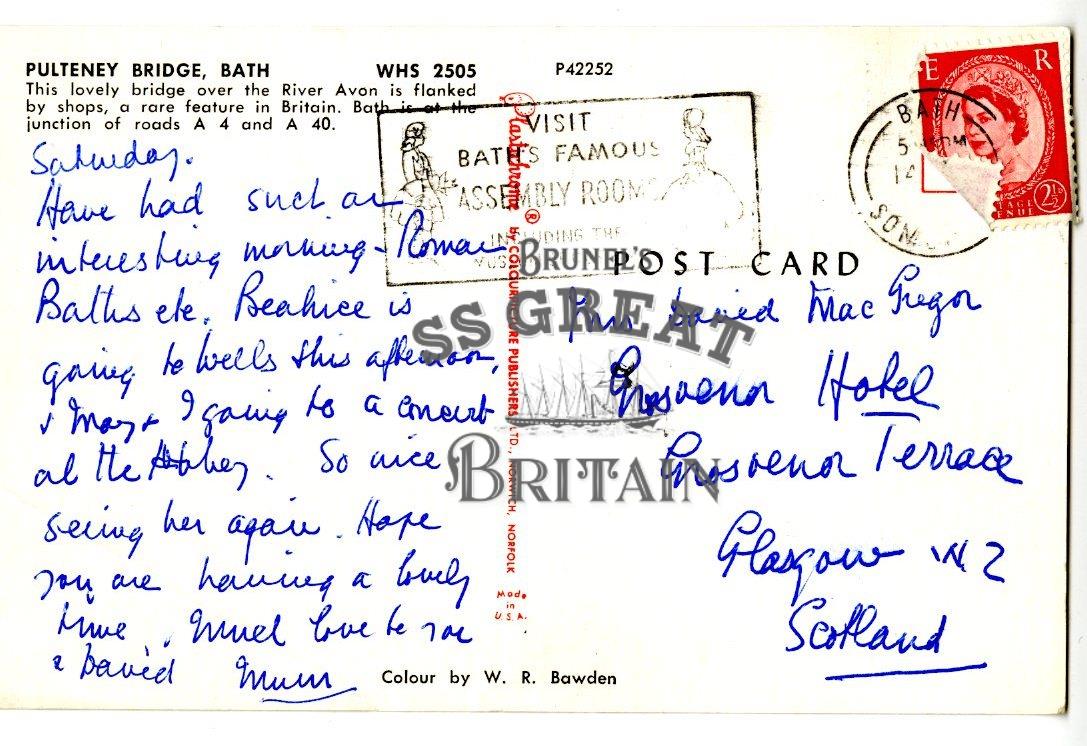 PULTENEY BRIDGE, BATH WHS 2505 P42252
This lovely bridge over the River Avon is flanked
by shops, a rare feature in Britain. Bath is at the
junction of roads A 4 and A 40.
Saturday.
Have had such an
interesting morning - Roman
Baths etc. Beatrice is
going to Wells this afternoon,
& Mary & I going to a concert
at the Abbey. So nice
seeing her again. Hope
you are having a lovely
time. Much love to you
& David Mum
Colour by W. R. Bawden
Plastichrome ® by COLOURPICTURE PUBLISHERS LTD., NORWICH, NORFOLK
Made
in
U.S.A.
VISIT
BATH'S FAMOUS
ASSEMBLY ROOMS
INCLUDING THE
BATH
14
SOM
E R
2½
POST CARD
BRUNEL'S
SS GREAT
BRITAIN
Mrs David MacGregor
Grosvenor Hotel
Grosvenor Terrace
Glasgow W2
Scotland